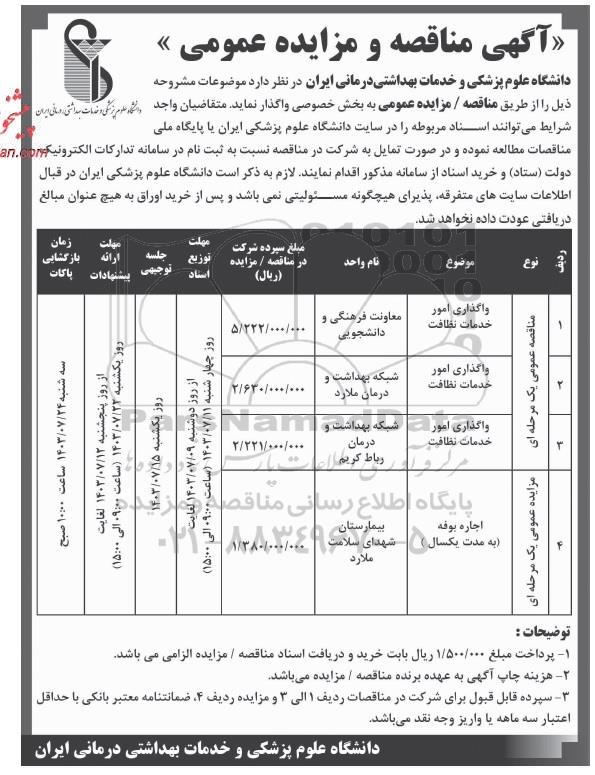 «آگهی مناقصه و مزایده عمومی»
دانشگاه علوم پزشکی و خدمات بهداشتی، درمانی ایران
دانشگاه علوم پزشکی و خدمات بهداشتی‌درمانی ایران در نظر دارد موضوعات مشروحه
ذیل را از طریق مناقصه / مزایده عمومی به بخش خصوصی واگذار نماید. متقاضیان واجد
شرایط می‌توانند اسناد مربوطه را در سایت دانشگاه علوم پزشکی ایران یا پایگاه ملی
مناقصات مطالعه نموده و در صورت تمایل به شرکت در مناقصه نسبت به ثبت نام در سامانه تدارکات الکترونیک
دولت (ستاد) و خرید اسناد از سامانه مذکور اقدام نمایند. لازم به ذکر است دانشگاه علوم پزشکی ایران در قبال
اطلاعات سایت های متفرقه، پذیرای هیچگونه مسئولیتی نمی باشد و پس از خرید اوراق به هیچ عنوان مبالغ
دریافتی عودت داده نخواهد شد.
ردیف
نوع
موضوع
نام واحد
مبلغ سپرده شرکت
در مناقصه / مزایده
(ریال)
مهلت
توزیع
اسناد
جلسه
توجیهی
مهلت
ارائه
پیشنهادات
زمان
بازگشایی
پاکات
۱
مناقصه عمومی یک مرحله ای
واگذاری امور
خدمات نظافت
معاونت فرهنگی و
دانشجویی
۵/۲۲۲/۰۰۰/۰۰۰
از روز دوشنبه ۱۴۰۳/۰۷/۰۹ لغایت
روز چهار شنبه ۱۴۰۳/۰۷/۱۱ (ساعت ۰۹:۰۰ الی ۱۵:۰۰)
روز یکشنبه ۱۴۰۳/۰۷/۱۵
از روز پنجشنبه ۱۴۰۳/۰۷/۱۲ لغایت
روز یکشنبه ۱۴۰۳/۰۷/۲۲ (ساعت ۰۹:۰۰ الی ۱۵:۰۰)
سه شنبه ۱۴۰۳/۰۷/۲۴ ساعت ۱۰:۰۰ صبح
۲
واگذاری امور
خدمات نظافت
شبکه بهداشت و
درمان ملارد
۲/۶۳۰/۰۰۰/۰۰۰
۳
واگذاری امور
خدمات نظافت
شبکه بهداشت و
درمان
رباط کریم
۲/۲۲۱/۰۰۰/۰۰۰
۴
مزایده عمومی یک مرحله ای
اجاره بوفه
(به مدت یکسال)
بیمارستان
شهدای سلامت
ملارد
۱/۳۸۰/۰۰۰/۰۰۰
ParsNamadData
پایگاه اطلاع رسانی مناقصه و مزایده
۰۲۱-۸۸۳۴۹۶۷۰-۵
توضیحات :
۱- پرداخت مبلغ ۱/۵۰۰/۰۰۰ ریال بابت خرید و دریافت اسناد مناقصه / مزایده الزامی می باشد.
۲- هزینه چاپ آگهی به عهده برنده مناقصه / مزایده می‌باشد.
۳- سپرده قابل قبول برای شرکت در مناقصات ردیف ۱ الی ۳ و مزایده ردیف ۴، ضمانتنامه معتبر بانکی با حداقل
اعتبار سه ماهه یا واریز وجه نقد می‌باشد.
دانشگاه علوم پزشکی و خدمات بهداشتی درمانی ایران